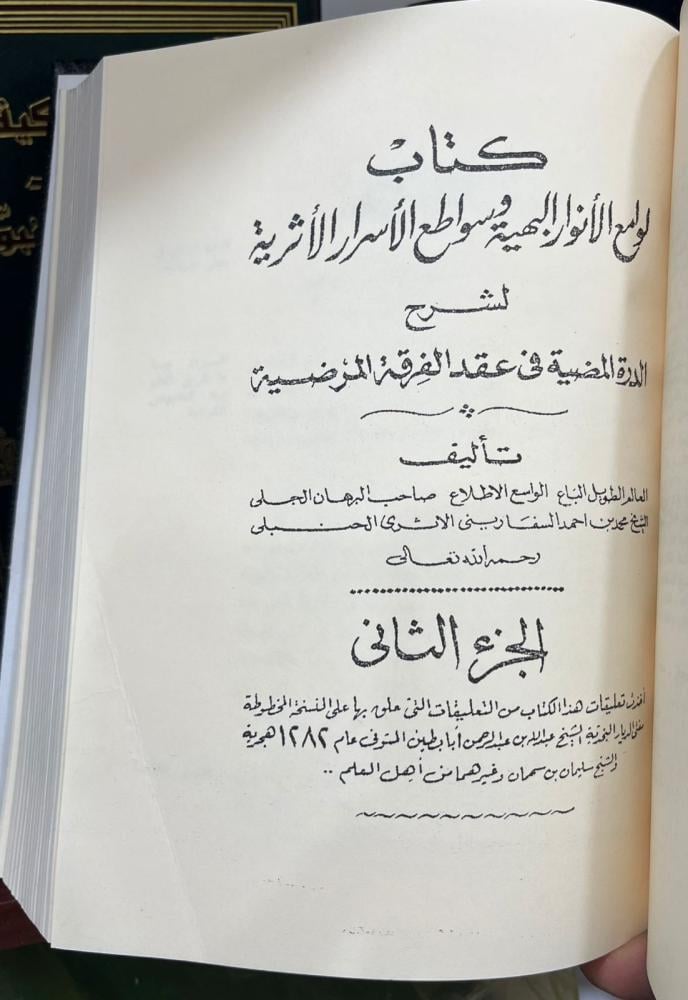 كتاب
لوامع الأنوار البهية وسواطع الأسرار الأثرية
لشرح
الدرة المضية في عقد الفرقة المرضية
تأليف
العالم الطويل الباع الواسع الاطلاع صاحب البرهان الجلى
الشيخ محمد بن احمد السفارينى الاثرى الحنبلى
رحمه الله تعالى
الجزء الثانى
أخذت تعليقات هذا الكتاب من التعليقات التى علق بها على النسخة المخطوطة
مفتى الديار النجدية الشيخ عبدالله بن عبدالرحمن أبابطين المتوفى عام ١٢٨٢ هجرية
والشيخ سليمان بن سحمان وغيرهما من أهل العلم ..